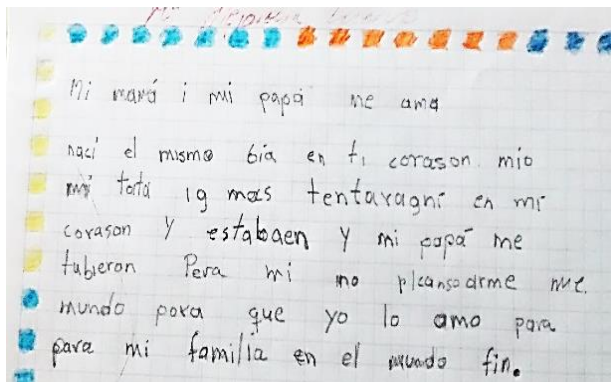 Mi mamá i mi papá me ama
naci el mismo bia en ti corason mio
mi tata ig mas en mi
corason y estabaen y mi papá me
tubieron Pera mi no me
mundo para que yo lo amo para
para mi familia en el mundo fin.